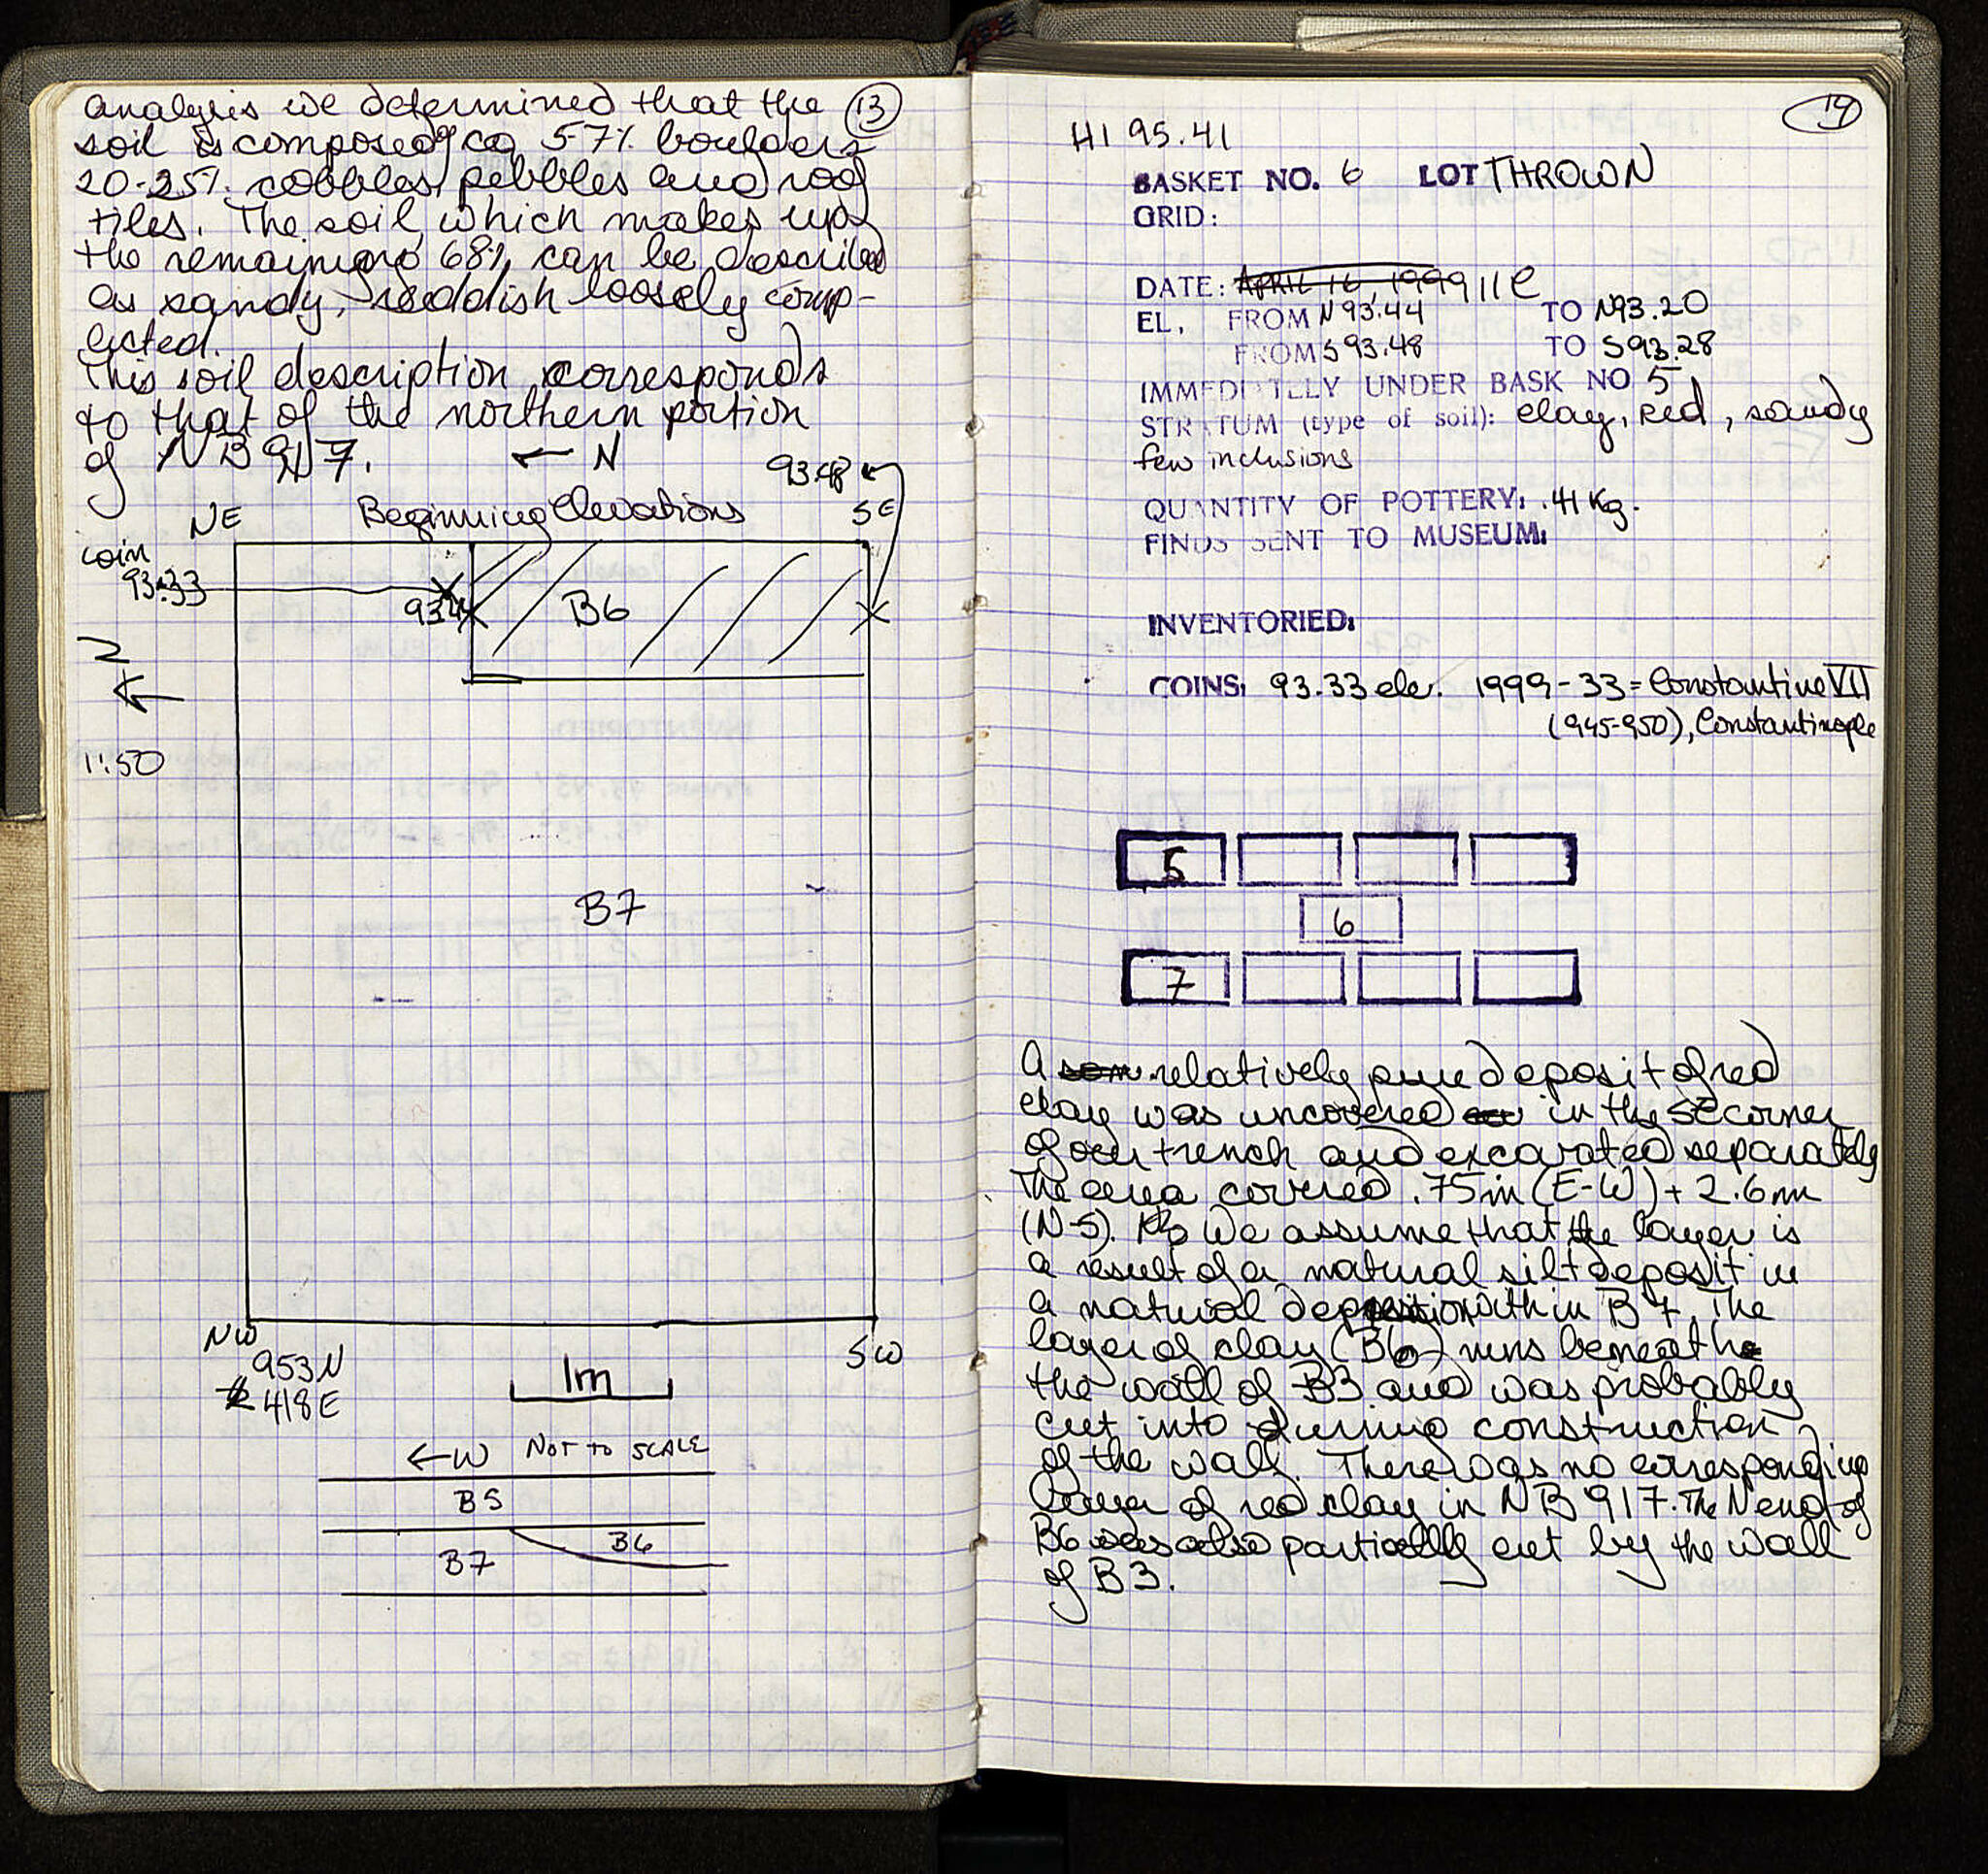 analysis we determined that the
13
soil is composed of ca 5-7% boulders
20-25% cobbles, pebbles and roof
tiles. The soil, which makes up
the remaining 68% can be described
as sandy, reddish loosely comp-
acted.
This soil description corresponds
to that of the northern portion
of NB 917.
← N
93.48
NE
Beginning Elevations
SE
coin
93.33
93.4
B6
N
1:50
B7
NW
SW
953 N
418 E
1m
← W NOT TO SCALE
B5
B6
B7
14
H1 95.41
BASKET NO. 6 LOT THROWN
GRID:
DATE: APRIL 16, 1999 11e
EL, FROM N 93.44 TO N93.20
FROM S 93.48 TO S93.28
IMMEDIATELY UNDER BASK NO 5
STRATUM (type of soil): clay, red, sandy
few inclusions
QUANTITY OF POTTERY: .41 Kg.
FINDS SENT TO MUSEUM:
INVENTORIED:
COINS: 93.33 ele. 1999-33 = Constantine VII
(945-950), Constantinople
5
6
7
A relatively pure deposit of red
clay was uncovered in the SE corner
of our trench and excavated separately
The area covered .75m (E-W) + 2.6m
(N-S). We assume that the layer is
a result of a natural silt deposit in
a natural depression within B7. The
layer of clay (B6) runs beneath
the wall of B3 and was probably
cut into during construction
of the wall. There was no corresponding
layer of red clay in NB 917. The N end of
B6 was also partially cut by the wall
of B3.